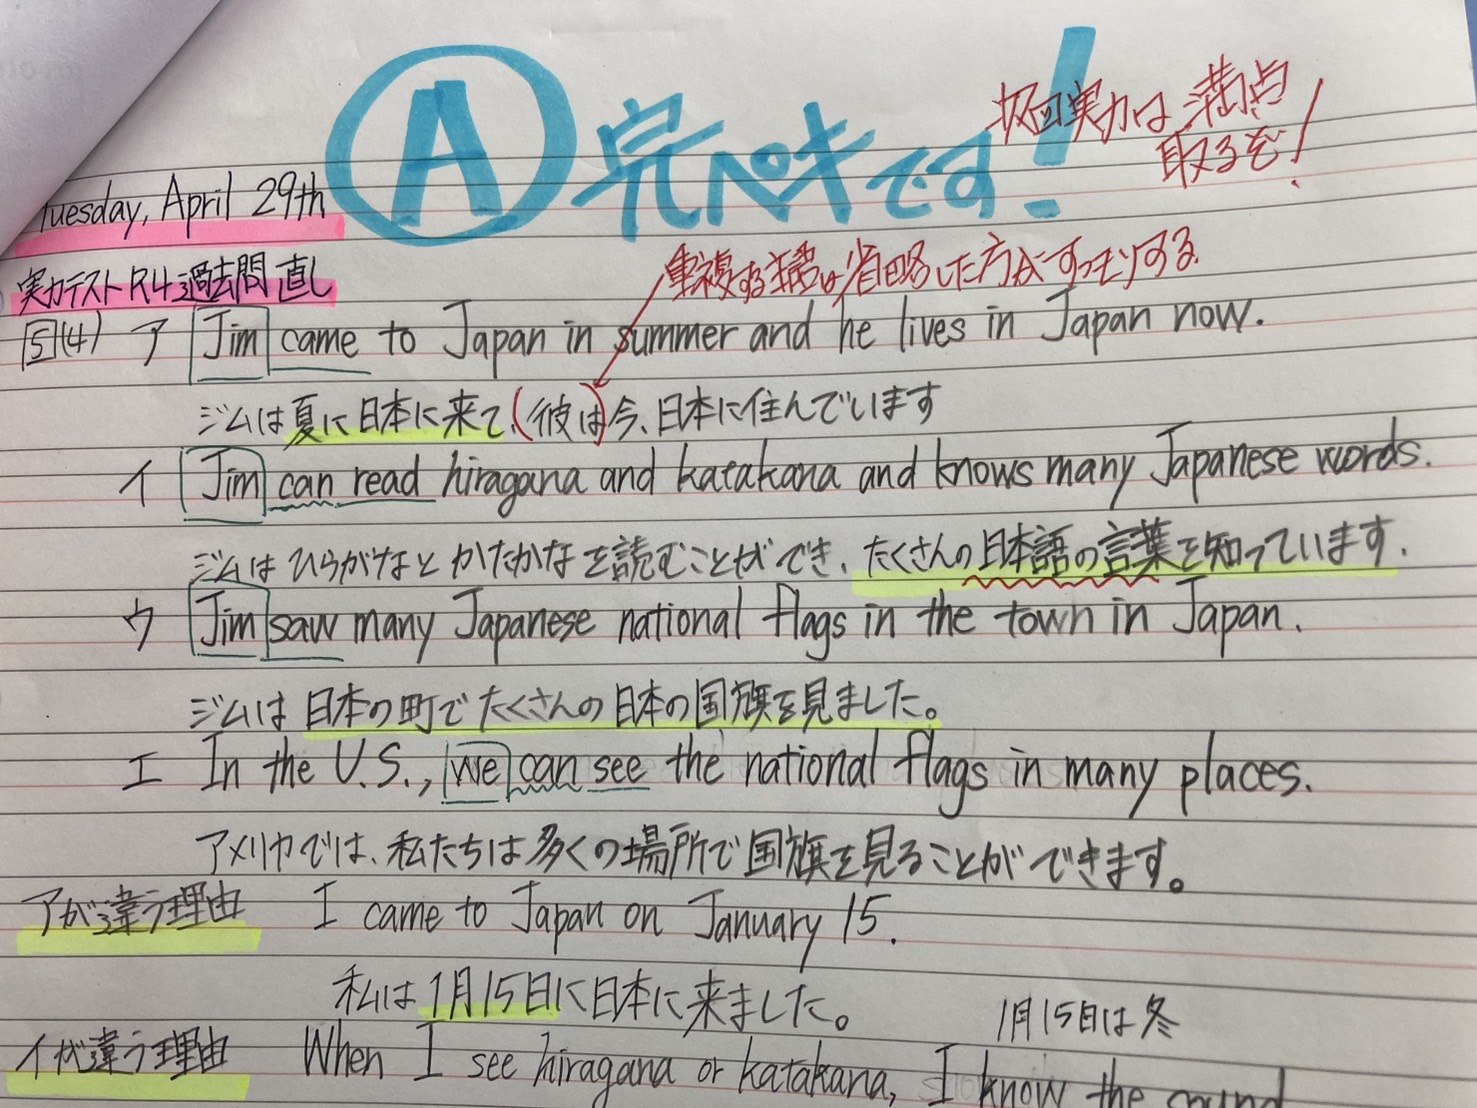 Ⓐ 完ペキです!
次回実力は満点
取るぞ!
Tuesday, April 29th
実力テストR4過去問直し
重複する主語は省略した方がすっきりする
5(4) ア Jim came to Japan in summer and he lives in Japan now.
ジムは夏に日本に来て、(彼は)今、日本に住んでいます
イ Jim can read hiragana and katakana and knows many Japanese words.
ジムはひらがなとかたかなを読むことができ、たくさんの日本語の言葉を知っています.
ウ Jim saw many Japanese national flags in the town in Japan.
ジムは日本の町でたくさんの日本の国旗を見ました。
エ In the U.S., we can see the national flags in many places.
アメリカでは、私たちは多くの場所で国旗を見ることができます。
アが違う理由 I came to Japan on January 15.
私は1月15日に日本に来ました。 1月15日は冬
イが違う理由 When I see hiragana or katakana, I know the sound